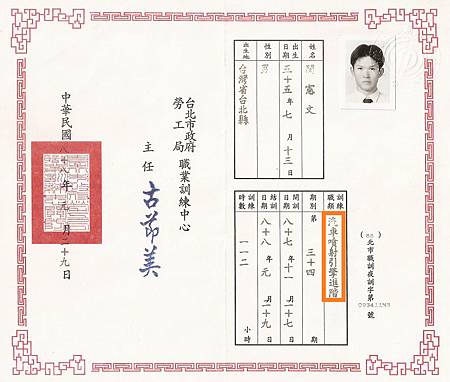 (88)北市職訓夜訓字第 號
姓名 憲文
出生日期 三十五年七月十三日
性別 男
出生地 台灣省台北縣
訓練職類 汽車噴射引擎進階
期別 第三十四期
開訓日期 八十七年十一月二十七日
結訓日期 八十八年元月二十九日
訓練時數 一一二小時
台北市政府
勞工局 職業訓練中心
主任 古 美
中華民國八十八年元月二十九日